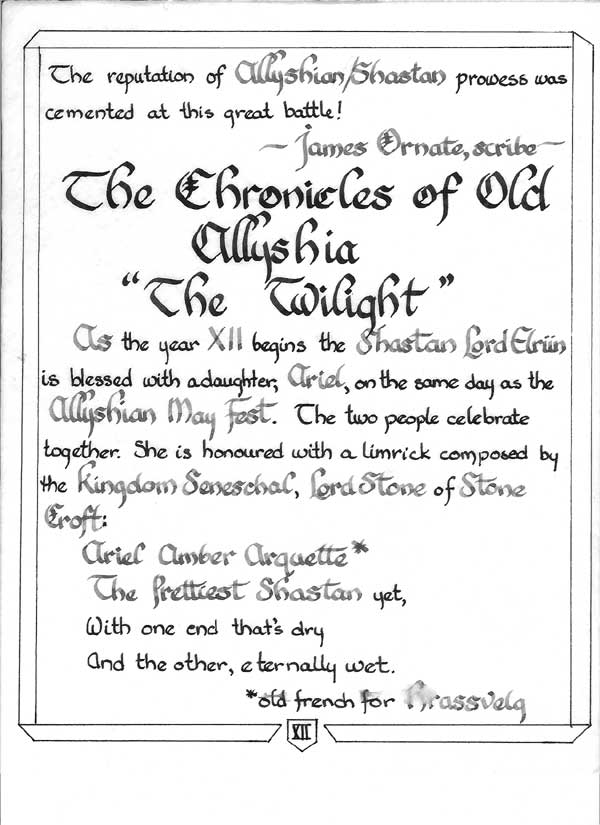 The reputation of Allyshian/Shastan prowess was
cemented at this great battle!
— James Ornate, scribe —
The Chronicles of Old
Allyshia
"The Twilight"
As the year XII begins the Shastan Lord Elriin
is blessed with a daughter, Ariel, on the same day as the
Allyshian May Fest. The two people celebrate
together. She is honoured with a limrick composed by
the Kingdom Seneschal, Lord Stone of Stone
Croft:
Ariel Amber Arquette*
The Prettiest Shastan yet,
With one end that's dry
And the other, eternally wet.
*old french for
XII